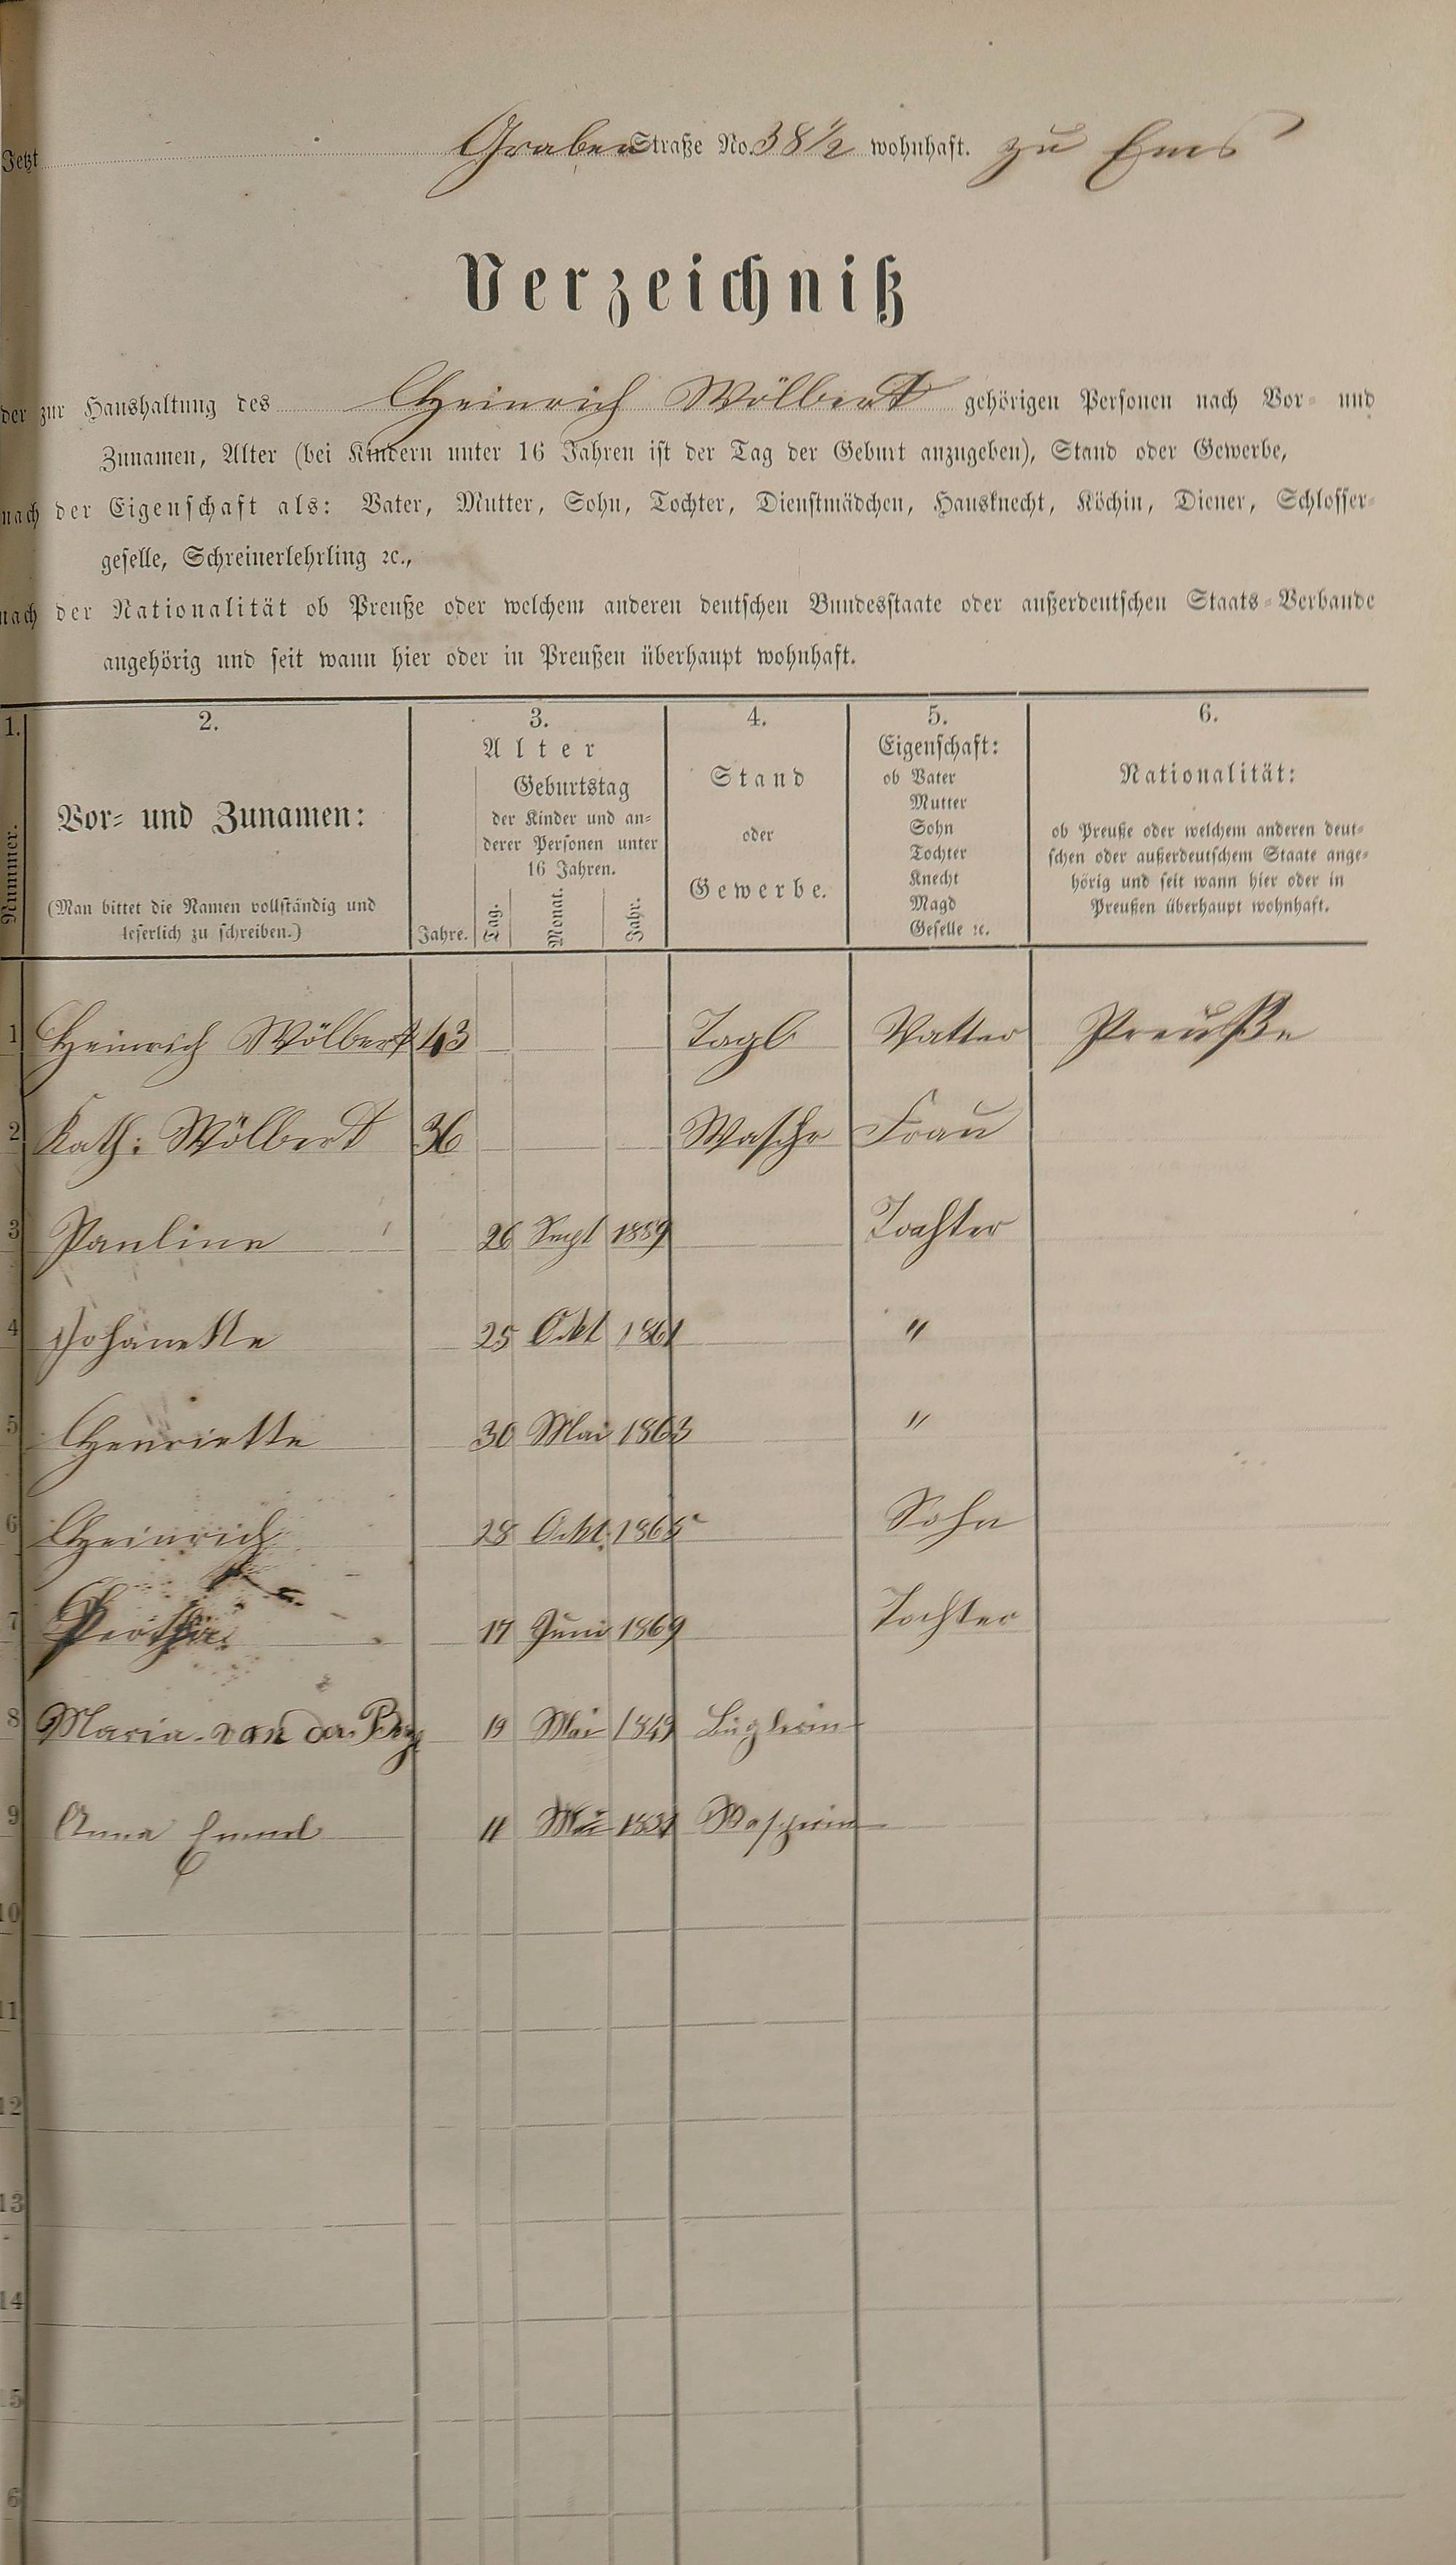 Jetzt Graben Straße No. 38 1/2 wohnhaft. zu Ems
Verzeichniß
der zur Haushaltung des Heinrich Wölbert gehörigen Personen nach Vor- und
Zunamen, Alter (bei Kindern unter 16 Jahren ist der Tag der Geburt anzugeben), Stand oder Gewerbe,
nach der Eigenschaft als: Vater, Mutter, Sohn, Tochter, Dienstmädchen, Hausknecht, Köchin, Diener, Schlosser-
geselle, Schreinerlehrling ꝛc.,
nach der Nationalität ob Preuße oder welchem anderen deutschen Bundesstaate oder außerdeutschen Staats-Verbande
angehörig und seit wann hier oder in Preußen überhaupt wohnhaft.
1.
Nummer.
2.
Vor- und Zunamen:
(Man bittet die Namen vollständig und
leserlich zu schreiben.)
3.
Alter
Jahre.
Geburtstag
der Kinder und an-
derer Personen unter
16 Jahren.
Tag.
Monat.
Jahr.
4.
Stand
oder
Gewerbe.
5.
Eigenschaft:
ob Vater
Mutter
Sohn
Tochter
Knecht
Magd
Geselle ꝛc.
6.
Nationalität:
ob Preuße oder welchem anderen deut-
schen oder außerdeutschem Staate ange-
hörig und seit wann hier oder in
Preußen überhaupt wohnhaft.
1 Heinrich Wölbert 43 Tagl Vatter Preuße
2 Kath: Wölbert 36 Waschr Frau
3 Pauline 26 Sept 1859 Tochter
4 Johanette 25 Okt 1861 "
5 Henriette 30 Mai 1863 "
6 Heinrich 28 Okt. 1865 Sohn
7 17 Juni 1869 Tochter
8 Maria van der Berg 19 Mai 1849 Büglerin
9 Anna Emmel 11 Mai Wascherin
10
11
12
13
14
15
6